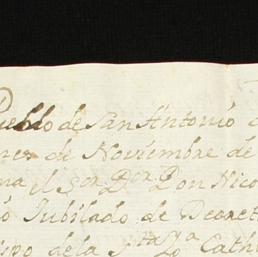 Pueblo de San Antonio
de Noviembre de
el Sor. Dor. Don Nico
Jubilado de Decret
ispo de la Sta. Ya. Cath